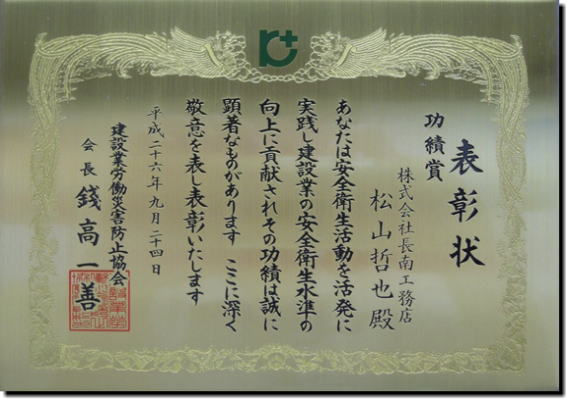 表彰状
功績賞
株式会社長南工務店
松山哲也殿
あなたは安全衛生活動を活発に
実践し建設業の安全衛生水準の
向上に貢献されその功績は誠に
顕著なものがあります ここに深く
敬意を表し表彰いたします
平成二十六年九月二十四日
建設業労働災害防止協会
会長 錢高一善